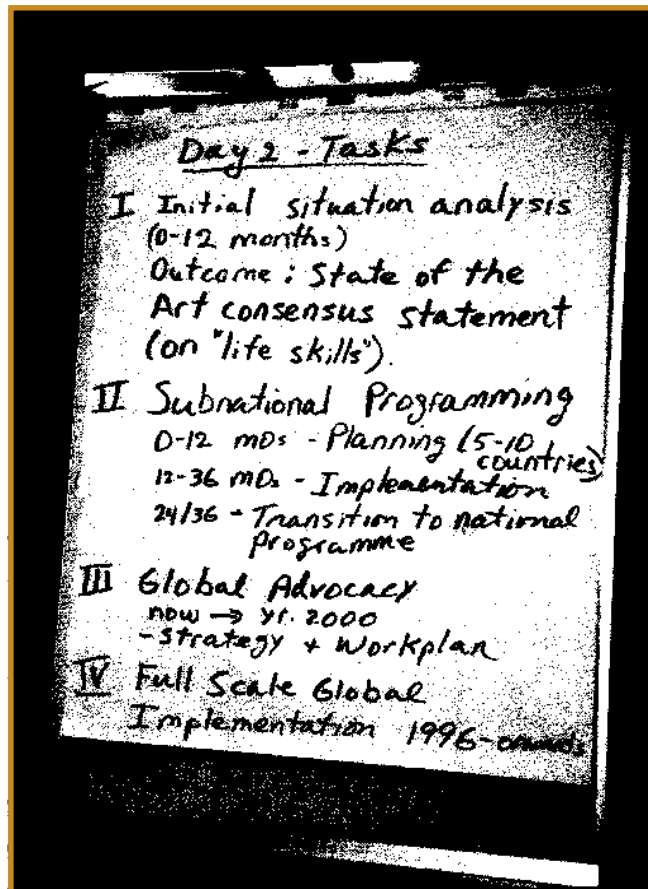 Day 2 - Tasks
I Initial situation analysis
(0-12 months)
Outcome : State of the
Art consensus statement
(on "life skills").
II Subnational Programming
0-12 mos - Planning (5-10
countries)
12-36 mos - Implementation
24/36 - Transition to national
Programme
III Global Advocacy
now → yr. 2000
- Strategy + Workplan
IV Full Scale Global
Implementation 1996-onwards